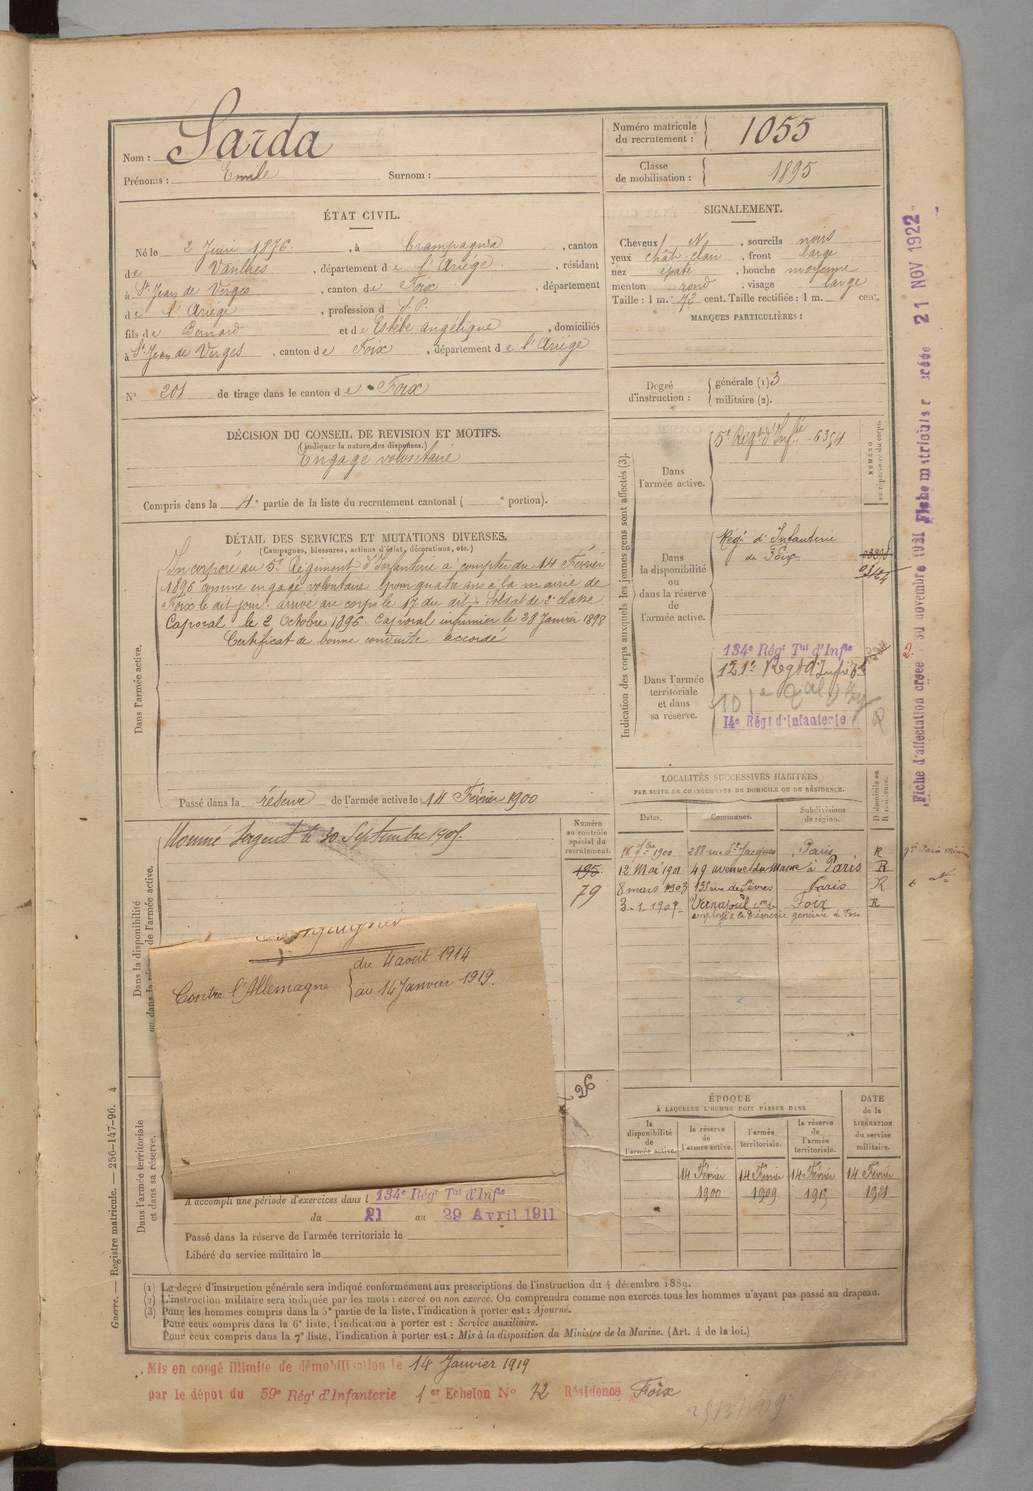 Nom : Sarda
Prénoms : Emile Surnom :
Numéro matricule du recrutement : 1055
Classe de mobilisation : 1895
ÉTAT CIVIL.
Né le 2 Juin 1876, à Crampagna, canton
de Varilhes, département de l'Ariège, résidant
à St Jean de Verges, canton de Foix, département
de l'Ariège, profession d S.P.
fils de Bernard et de Estèbe angélique, domiciliés
à St Jean de Verges, canton de Foix, département de l'Ariège
N° 201 de tirage dans le canton de Foix
SIGNALEMENT.
Cheveux N, sourcils noirs
yeux chât clair, front large
nez épaté, bouche moyenne
menton rond, visage large
Taille : 1 m. 72 cent. Taille rectifiée : 1 m. cent.
MARQUES PARTICULIÈRES :
Degré d'instruction : générale (1) 3
militaire (2).
DÉCISION DU CONSEIL DE REVISION ET MOTIFS.
(indiquer la nature des dispenses.)
Engagé volontaire
Compris dans la 4e partie de la liste du recrutement cantonal ( e portion).
DÉTAIL DES SERVICES ET MUTATIONS DIVERSES.
(Campagnes, blessures, actions d'éclat, décorations, etc.)
Dans l'armée active.
Incorporé au 5e Régiment d'Infanterie à compter du 14 Février
1896 comme engagé volontaire pour quatre ans à la mairie de
Foix le dit jour. arrivé au corps le 17 du dit. Soldat de 2e classe
Caporal le 2 Octobre 1896. Caporal infirmier le 28 Janvier 1898
Certificat de bonne conduite accordé
Passé dans la réserve de l'armée active le 14 Février 1900
Indication des corps auxquels les jeunes gens sont affectés (3).
NUMÉRO au répertoire du corps.
Dans l'armée active.
5e Regt d'Infie 6354
Dans la disponibilité ou dans la réserve de l'armée active.
Régt d'Infanterie
de Foix
Dans l'armée territoriale et dans sa reserve.
134e Régt Tal d'Infie
121e Regt d'Infie
14e Régt d'Infanterie
LOCALITÉS SUCCESSIVES HABITÉES
PAR SUITE DE CHANGEMENTS DE DOMICILE OU DE RÉSIDENCE.
Dates. Communes. Subdivisions de région. D domicile ou R résidence.
18 7bre 1900 288 rue St Jacques Paris R
12 Mai 1901 49 avenue du Maine à Paris R
8 mars 1903 131 rue de Sèvres Paris R
3.1.1907 Vernajoul con de Foix R
employé à la trésorerie générale de Foix
Dans la disponibilité ou dans la réserve de l'armée active.
Nommé Sergent le 30 Septembre 1905
Numéro au contrôle spécial du recrutement.
195
79
Contre l'Allemagne
du 4 août 1914
au 14 Janvier 1919.
Dans l'armée territoriale et dans sa réserve.
A accompli une période d'exercices dans l 134e Régt Tal d'Infie
du 21 au 29 Avril 1911
Passé dans la réserve de l'armée territoriale le
Libéré du service militaire le
ÉPOQUE
À LAQUELLE L'HOMME DOIT PASSER DANS
DATE de la LIBÉRATION du service militaire.
la disponibilité de l'armée active.
la réserve de l'armée active.
l'armée territoriale.
la réserve de l'armée territoriale.
14 Février 1900
14 Février 1909
14 Février 1915
14 Février 1921
(1) Le degré d'instruction générale sera indiqué conformément aux prescriptions de l'instruction du 4 décembre 1889.
(2) L'instruction militaire sera indiquée par les mots : exercé ou non exercé. On comprendra comme non exercés tous les hommes n'ayant pas passé au drapeau.
(3) Pour les hommes compris dans la 5e partie de la liste, l'indication à porter est : Ajourné.
Pour ceux compris dans la 6e liste, l'indication à porter est : Service auxiliaire.
Pour ceux compris dans la 7e liste, l'indication à porter est : Mis à la disposition du Ministre de la Marine. (Art. 4 de la loi.)
Mis en congé illimité de démobilisation le 14 Janvier 1919
par le dépôt du 59e Régt d'Infanterie 1er Echelon N° 72 Résidence Foix
Guerre. — Registre matricule. — 256-147-96. 4
Fiche d'affectation créée 30 novembre 1921 Fiche matricule créée 21 NOV 1922